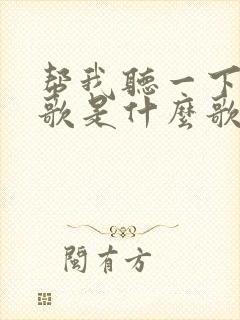 帮我聽一下
歌是什麼歌
閩有方